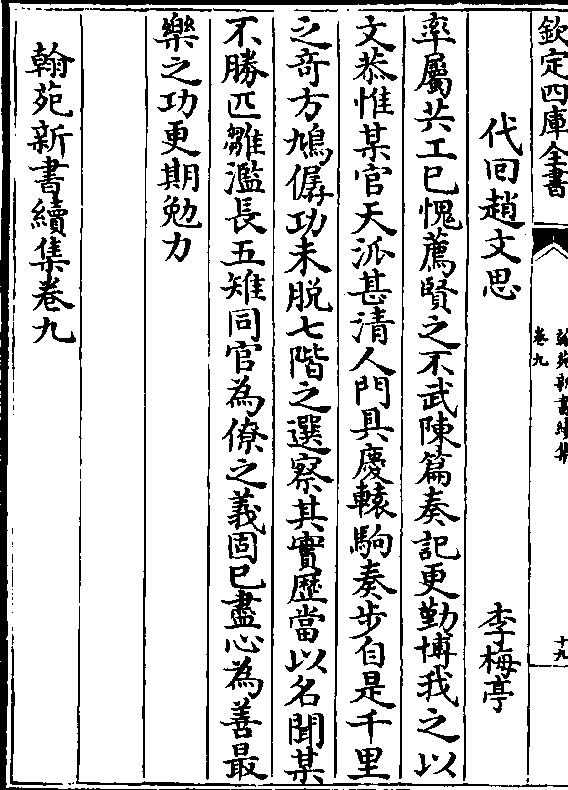 欽定四庫全書
翰苑新書續集
卷九
十九
代回趙文思　李梅亭
率屬共工已愧薦賢之不武陳篇奏記更勤博我之以
文恭惟某官天派甚清人門具慶轅駒奏步自是千里
之奇方鳩僝功未脱七階之選察其實歷當以名聞某
不勝匹雛濫長五雉同官為僚之義固已盡心為善最
樂之功更期勉力
翰苑新書續集卷九